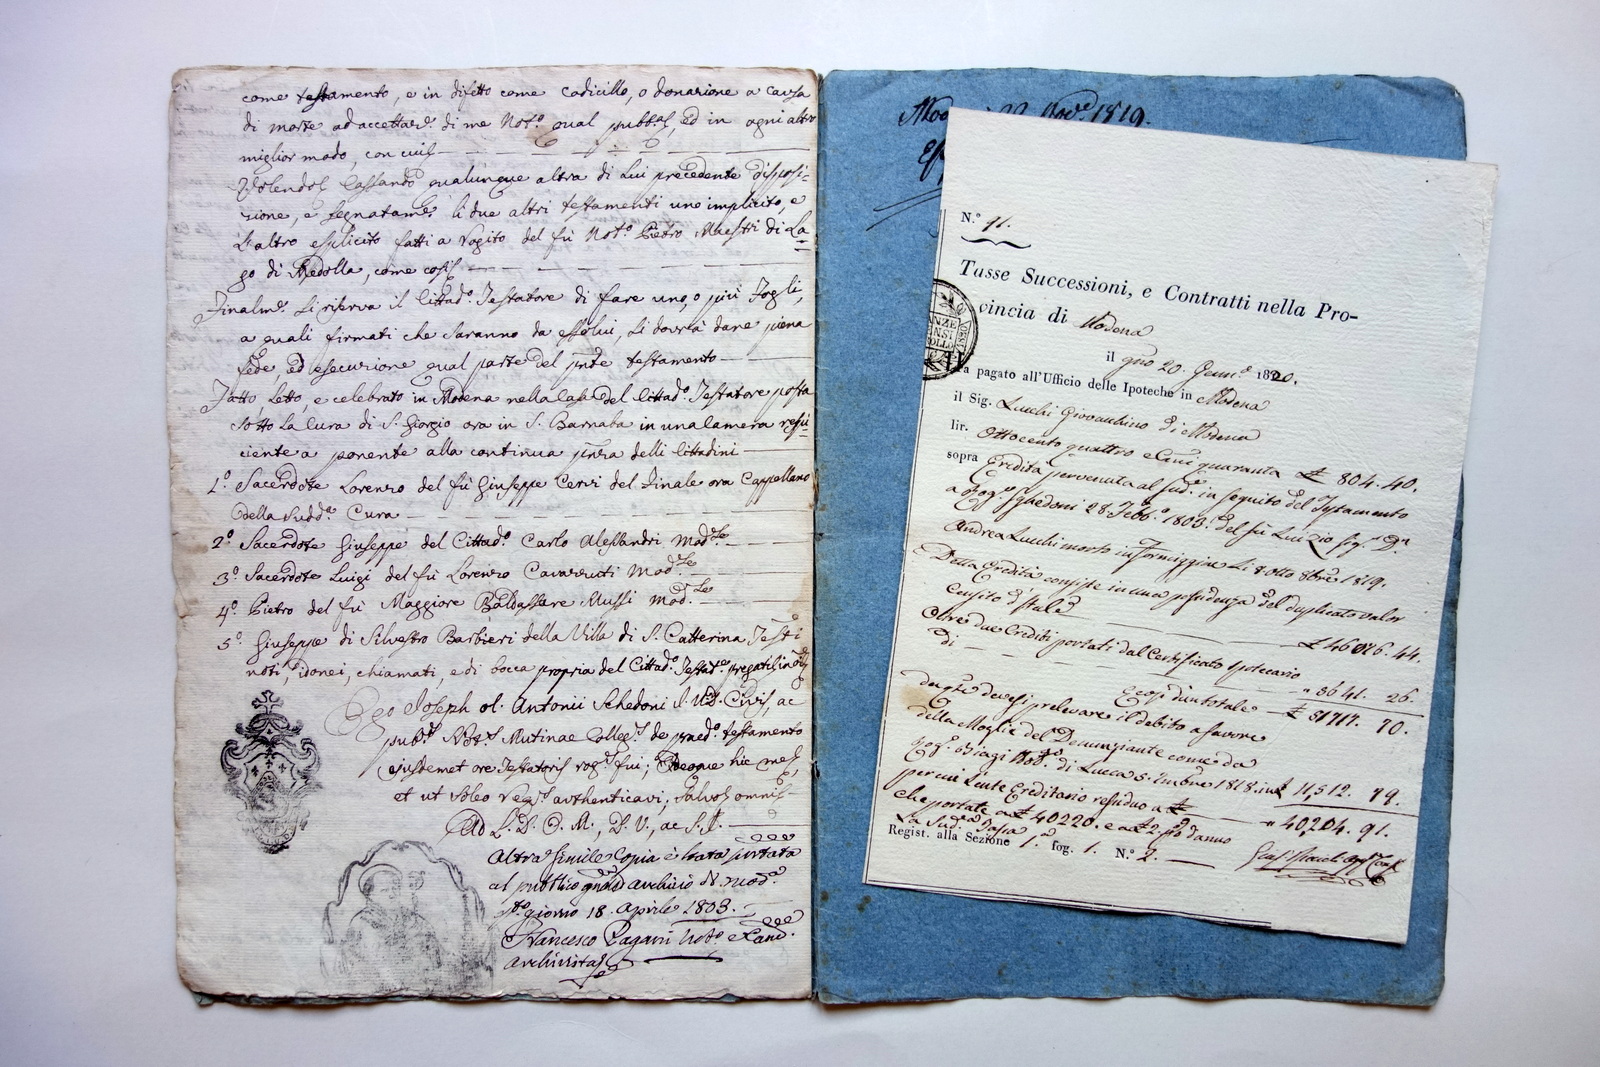 come testamento, e in difetto come Codicillo, o donazione a causa
di morte ad accettar.e di me Not.o qual pubb.a, ed in ogni altro
miglior modo, con cui
Volendo, Cassando qualunque altra di Lui precedente disposi-
zione, e segnatam.e li due altri testamenti uno implicito, e
l'altro esplicito fatti a rogito del fù Not.o Pietro Maestri di La-
go di Medolla, come così
Finalm.e si riserva il Cittad.o Testatore di fare uno, o più Fogli,
a quali firmati che saranno da esso lui, si dovrà dare piena
fede, ed esecuzione qual parte del pnte testamento
Fatto, Letto, e celebrato in Modena nella Casa del Cittad.o Testatore posta
sotto la Cura di S. Giorgio ora in S. Barnaba in una Camera
ciente a ponente alla continua pnza delli Cittadini
1.o Sacerdote Lorenzo del fù Giuseppe Cervi del Finale ora Cappellano
della Sudd.a Cura
2.o Sacerdote Giuseppe del Cittad.o Carlo Alessandri Mod.se
3.o Sacerdote Luigi del fù Lorenzo Cavazzuti Mod.se
4.o Pietro del fù Maggiore Baldassare Mussi Mod.se
5.o Giuseppe di Silvestro Barbieri della Villa di S. Catterina Testi
noti, idonei, chiamati, e di bocca propria del Cittad.o Testat.e pregati
Ego Joseph ol. Antonii Schedoni J. U. D. Civis, ac
pub.s Not.s Mutinae Colleg.s de praed.o testamento
ejusdemet ore Testatoris rog.s fui; Ideoque hic me
et ut soleo reg.s authenticavi, salvo omni
Ad L. D. O. M., B. V., ac S. J.
Altra simile Copia è stata portata
al pubblico archivio di Mod.a
giorno 18. Aprile 1803.
Francesco Pagani Not.o e Canc.
Archivista
Nov.e 1819.
N.o 91.
Tasse Successioni, e Contratti nella Pro-
vincia di Modena
il gno 20. Genn.o 1820.
a pagato all'Ufficio delle Ipoteche in Modena
il Sig. Lucchi Giovacchino di Modena
lir. Ottocento quattro e Cmi quaranta £ 804. 40.
sopra Eredità pervenuta al sud.o in seguito del Testamento
a Rog.o Schedoni 28. Febb.o 1803. del fù Lui zio Sig.r D.n
Andrea Lucchi morto in Formiggine li 8 ottobre 1819.
Della Eredità consiste in una possidenza del duplicato valor
Censito d'
£ 46076. 44.
Oltre due Crediti portati dal Certificato Ipotecario
di " 5641. 26.
Ecosì in totale £ 51717. 70.
da q.le devesi prelevare il debito a favore
della Moglie del Denunziante come da
rog.o Biagi Not.o di Lucca 5. 1818. in £ 11,512. 79.
per cui l'ente Ereditario residuo a £ " 40,204. 91.
che portate a £ 40220. e a £ 2. p.o danno
la Sud.a Tassa
Regist. alla Sezione 1.a fog. 1. N.o 2.